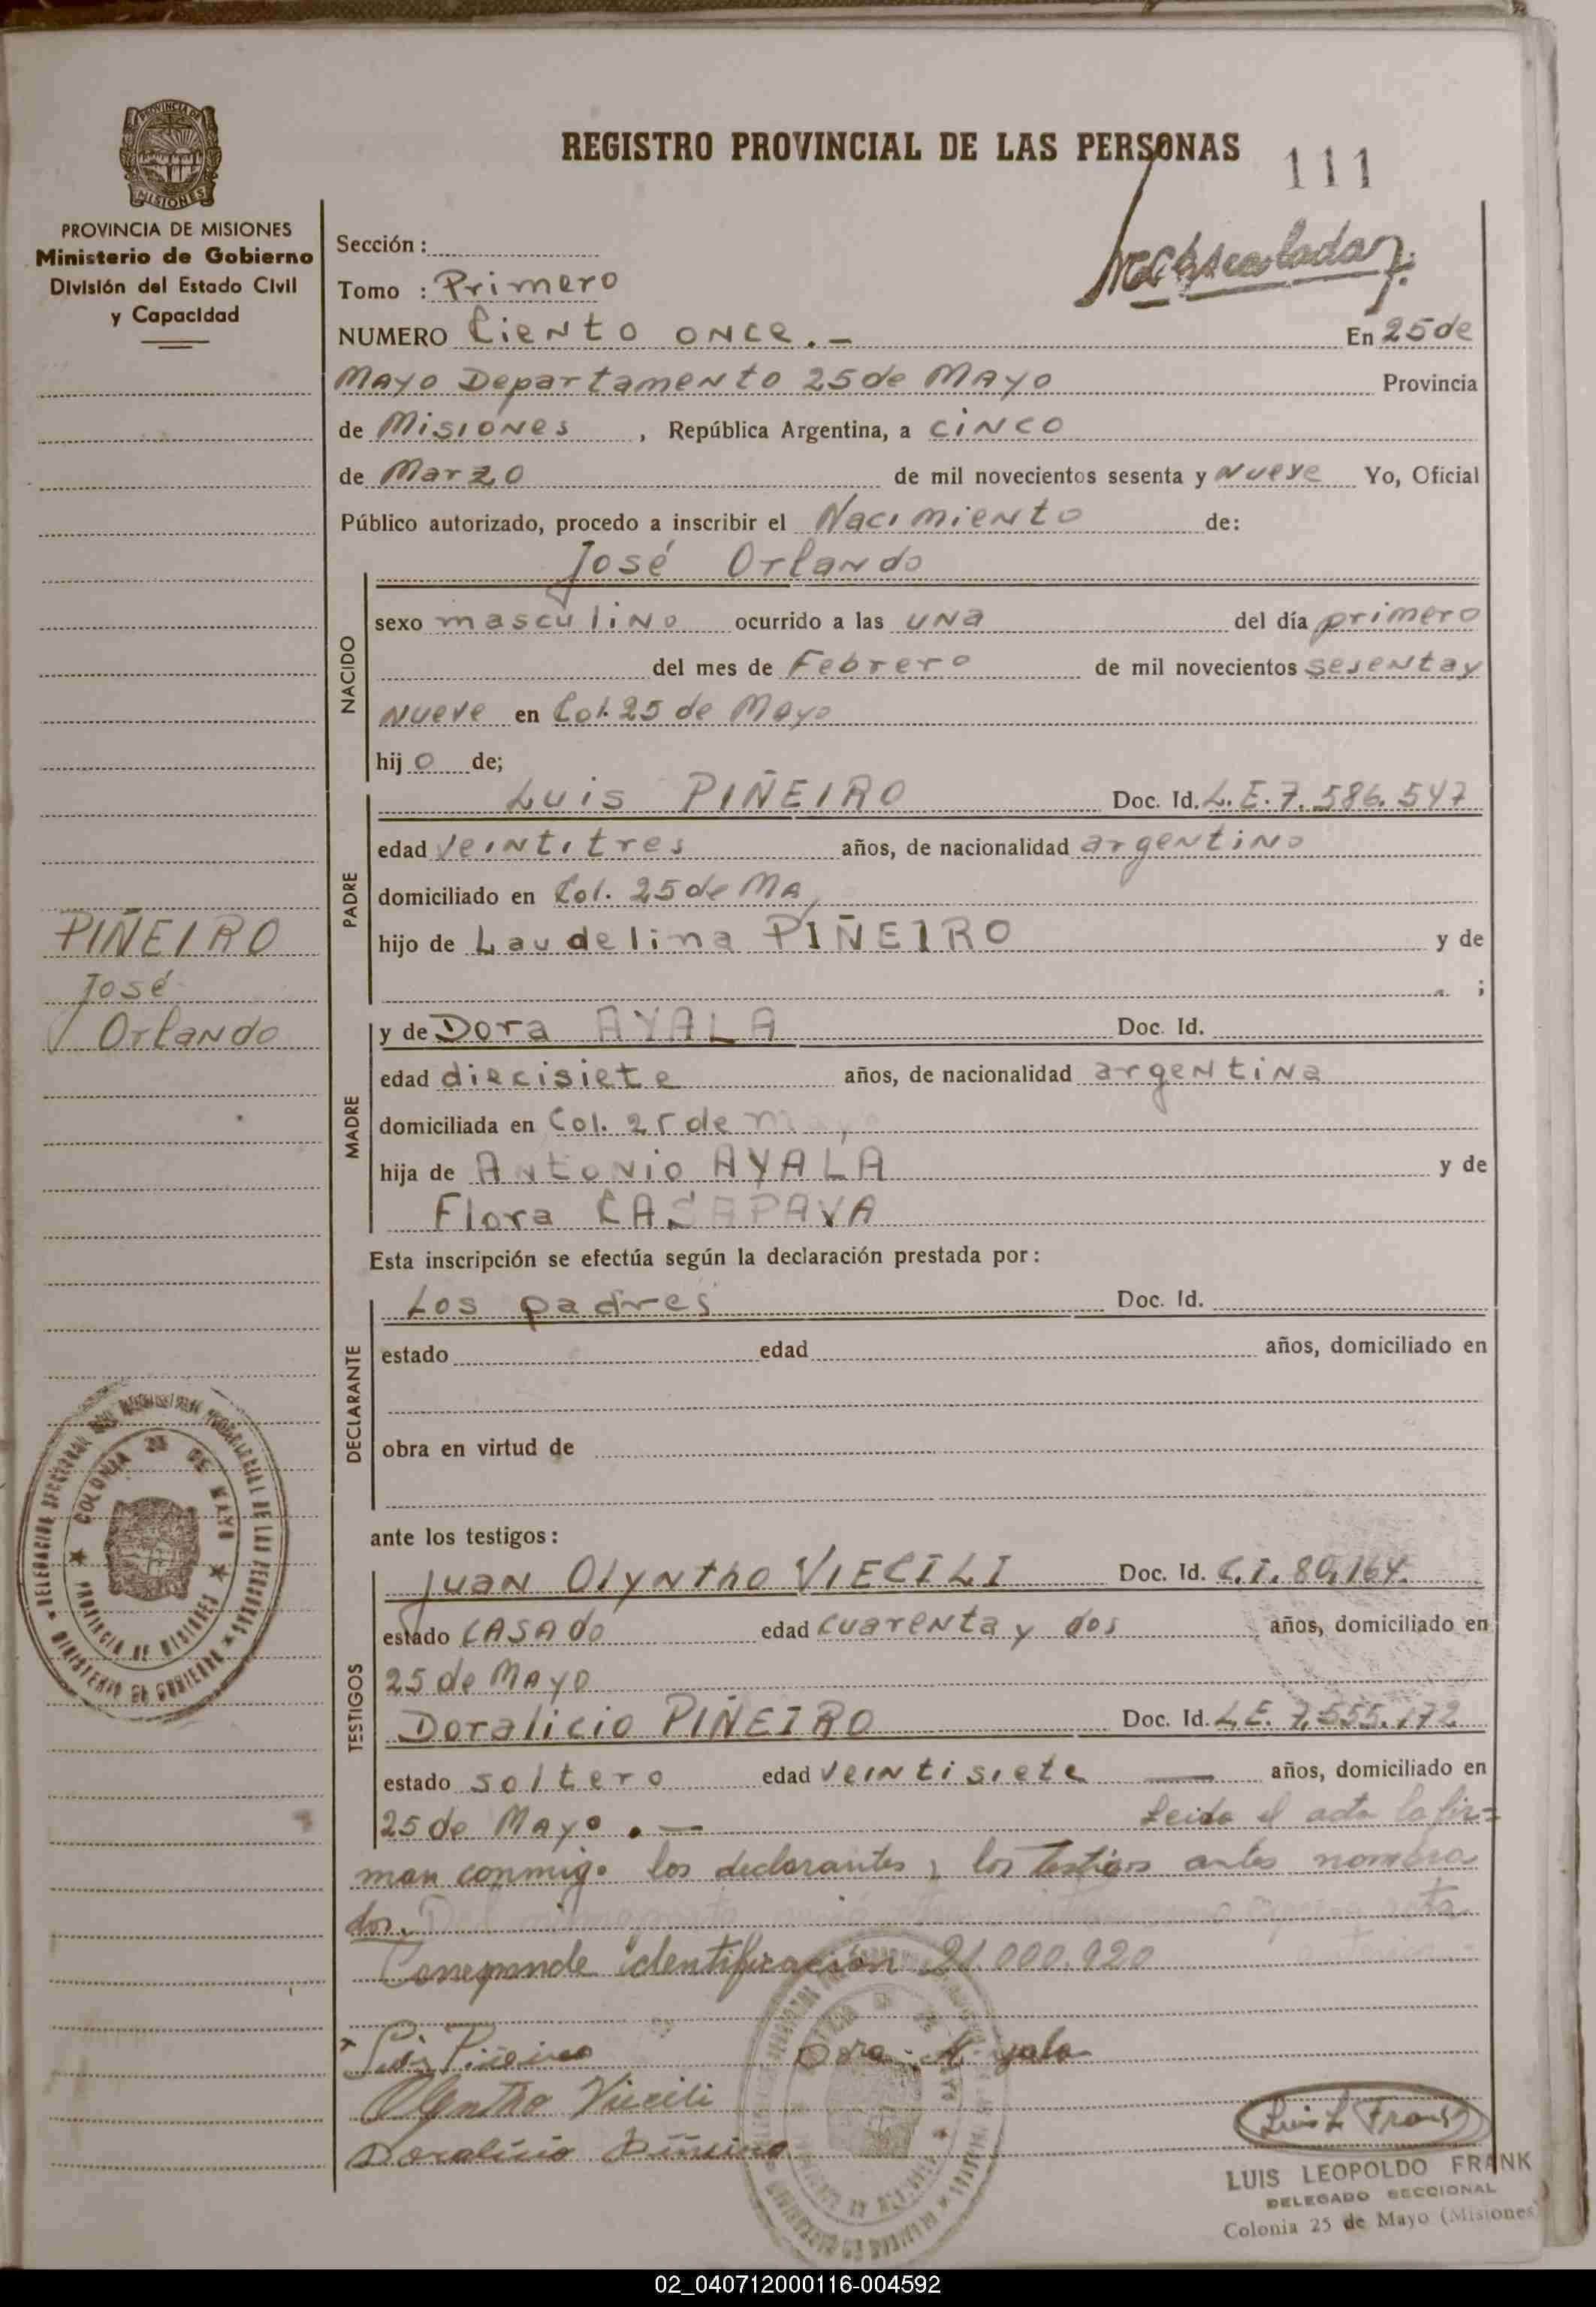 REGISTRO PROVINCIAL DE LAS PERSONAS
111
PROVINCIA DE MISIONES
Ministerio de Gobierno
División del Estado Civil
y Capacidad
Sección :
Tomo : Primero
NUMERO Ciento once . – En 25 de
Mayo Departamento 25 de Mayo Provincia
de Misiones , República Argentina, a cinco
de Marzo de mil novecientos sesenta y Nueve Yo, Oficial
Público autorizado, procedo a inscribir el Nacimiento de:
José Orlando
NACIDO
sexo masculino ocurrido a las una del día primero
del mes de Febrero de mil novecientos sesenta y
Nueve en Col. 25 de Mayo
hij o de;
PADRE
Luis PIÑEIRO Doc. Id. L.E. 7.586.547
edad veintitres años, de nacionalidad argentino
domiciliado en Col. 25 de MA
hijo de Laudelina PIÑEIRO y de
;
PIÑEIRO
José
Orlando
MADRE
y de Dora AYALA Doc. Id.
edad diecisiete años, de nacionalidad argentina
domiciliada en Col. 25 de Mayo
hija de Antonio AYALA y de
Flora CASAPAVA
Esta inscripción se efectúa según la declaración prestada por :
DECLARANTE
Los padres Doc. Id.
estado edad años, domiciliado en
obra en virtud de
ante los testigos :
TESTIGOS
Juan Olyntho VIECILI Doc. Id. C.I. 80.164.
estado CASADO edad cuarenta y dos años, domiciliado en
25 de Mayo
Doralicio PIÑEIRO Doc. Id. L.E. 7.555.172
estado soltero edad veintisiete — años, domiciliado en
25 de Mayo . – Leida el acta la fir=
man conmigo los declarantes y los testigos antes nombra
dos.
Corresponde identificación 21.000.920
Luis Piñeiro Dora A yala
Olyntho Viecili
Doralicio Piñeiro
Luis L Frank
LUIS LEOPOLDO FRANK
DELEGADO SECCIONAL
Colonia 25 de Mayo (Misiones)
COLONIA 25 DE MAYO
PROVINCIA DE MISIONES
02_040712000116-004592